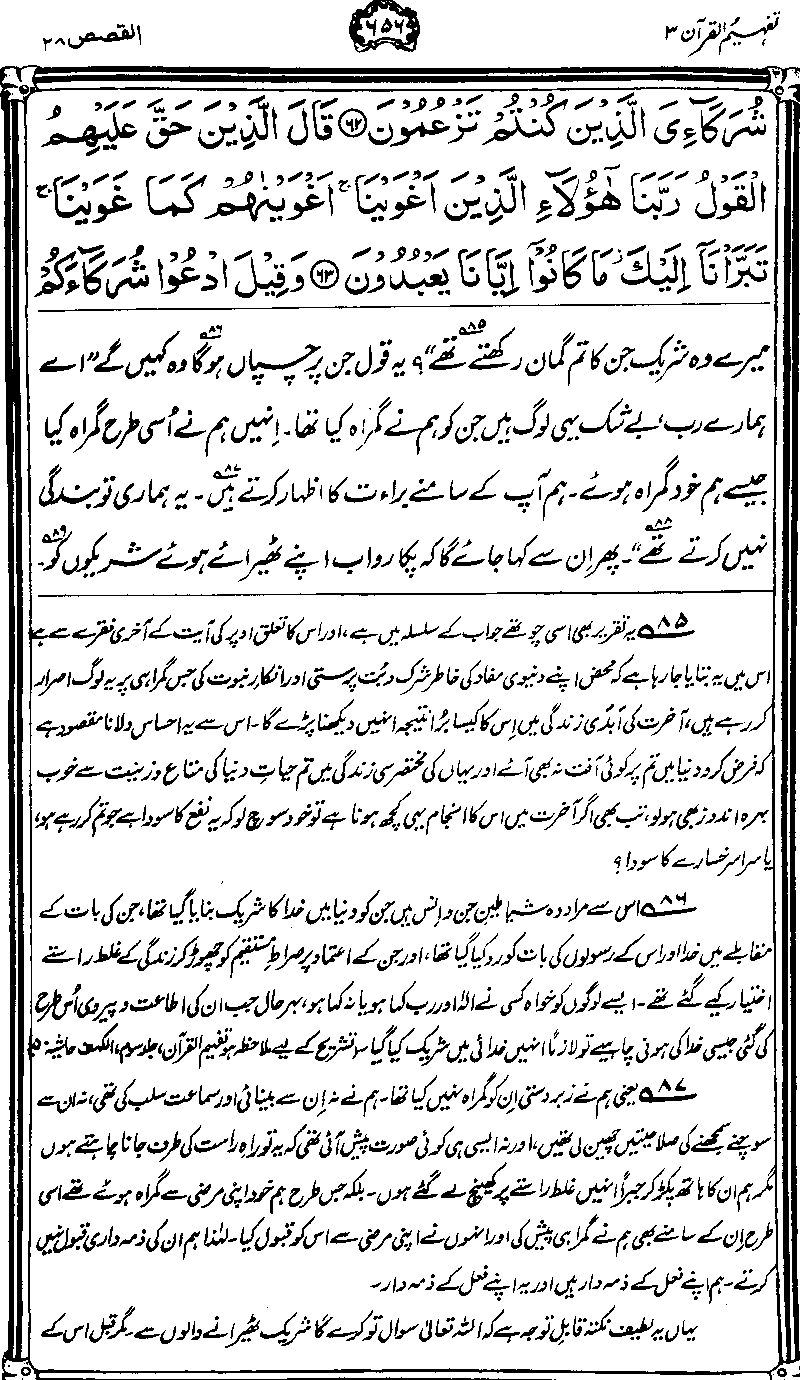 تفہیم القرآن ۳
۶۵۶
القصص ۲۸
شُرَكَآءِیَ الَّذِیْنَ كُنْتُمْ تَزْعُمُوْنَ ﴿۶۲﴾ قَالَ الَّذِیْنَ حَقَّ عَلَیْهِمُ
الْقَوْلُ رَبَّنَا هٰۤؤُلَآءِ الَّذِیْنَ اَغْوَیْنَا ۚ اَغْوَیْنٰهُمْ كَمَا غَوَیْنَا ۚ
تَبَرَّاْنَاۤ اِلَیْكَ ؗ مَا كَانُوْۤا اِیَّانَا یَعْبُدُوْنَ ﴿۶۳﴾ وَ قِیْلَ ادْعُوْا شُرَكَآءَكُمْ
میرے وہ شریک جن کا تم گمان رکھتے تھے"؟ ۸۵ یہ قول جن پر چسپاں ہوگا ۸۶ وہ کہیں گے "اے
ہمارے رب، بے شک یہی لوگ ہیں جن کو ہم نے گمراہ کیا تھا۔ اِنہیں ہم نے اُسی طرح گمراہ کیا
جیسے ہم خود گمراہ ہوئے۔ ہم آپ کے سامنے براءت کا اظہار کرتے ہیں ۸۷۔ یہ ہماری تو بندگی
نہیں کرتے تھے" ۸۸۔ پھر اِن سے کہا جائے گا کہ پکارو اب اپنے ٹھیرائے ہوئے شریکوں کو ۸۹۔
۸۵ یہ تقریر بھی اسی چوتھے جواب کے سلسلہ میں ہے، اور اس کا تعلق اوپر کی آیت کے آخری فقرے سے ہے
اس میں یہ بتایا جا رہا ہے کہ محض اپنے دنیوی مفاد کی خاطر شرک و بُت پرستی اور انکارِ نبوت کی جس گمراہی پر یہ لوگ اصرار
کر رہے ہیں، آخرت کی اَبدی زندگی میں اِس کا کیسا بُرا نتیجہ انہیں دیکھنا پڑے گا۔ اس سے یہ احساس دلانا مقصود ہے
کہ فرض کرو دنیا میں تم پر کوئی آفت نہ بھی آئے اور یہاں کی مختصر سی زندگی میں تم حیاتِ دنیا کی متاع و زینت سے خوب
بہرہ اندوز بھی ہو لو، تب بھی اگر آخرت میں اس کا انجام یہی کچھ ہونا ہے تو خود سوچ لو کہ یہ نفع کا سودا ہے جو تم کر رہے ہو،
یا سراسر خسارے کا سودا؟
۸۶ اس سے مراد وہ شیاطینِ جن و انس ہیں جن کو دنیا میں خدا کا شریک بنایا گیا تھا، جن کی بات کے
مقابلے میں خدا اور اس کے رسولوں کی بات کو رد کیا گیا تھا، اور جن کے اعتماد پر صراطِ مستقیم کو چھوڑ کر زندگی کے غلط راستے
اختیار کیے گئے تھے۔ ایسے لوگوں کو خواہ کسی نے اِلٰہ اور رب کہا ہو یا نہ کہا ہو، بہر حال جب ان کی اطاعت و پیروی اُس طرح
کی گئی جیسی خدا کی ہونی چاہیے تو لازمًا انہیں خدائی میں شریک کیا گیا (تشریح کے لیے ملاحظہ ہو تفہیم القرآن، جلد سوم، الکہف حاشیہ ۵۰
۸۷ یعنی ہم نے زبردستی اِن کو گمراہ نہیں کیا تھا۔ ہم نے نہ اِن سے بینائی اور سماعت سلب کی تھی، نہ ان سے
سوچنے سمجھنے کی صلاحیتیں چھین لی تھیں، اور نہ ایسی ہی کوئی صورت پیش آئی تھی کہ یہ تو راہِ راست کی طرف جانا چاہتے ہوں
مگر ہم ان کا ہاتھ پکڑ کر جبراً انہیں غلط راستے پر کھینچ لے گئے ہوں۔ بلکہ جس طرح ہم خود اپنی مرضی سے گمراہ ہوئے تھے اسی
طرح اِن کے سامنے بھی ہم نے گمراہی پیش کی اور انہوں نے اپنی مرضی سے اس کو قبول کیا۔ لہٰذا ہم ان کی ذمہ داری قبول نہیں
کرتے۔ ہم اپنے فعل کے ذمہ دار ہیں اور یہ اپنے فعل کے ذمہ دار۔
یہاں یہ لطیف نکتہ قابلِ توجہ ہے کہ اللہ تعالیٰ سوال تو کرے گا شریک ٹھیرانے والوں سے۔ مگر قبل اس کے